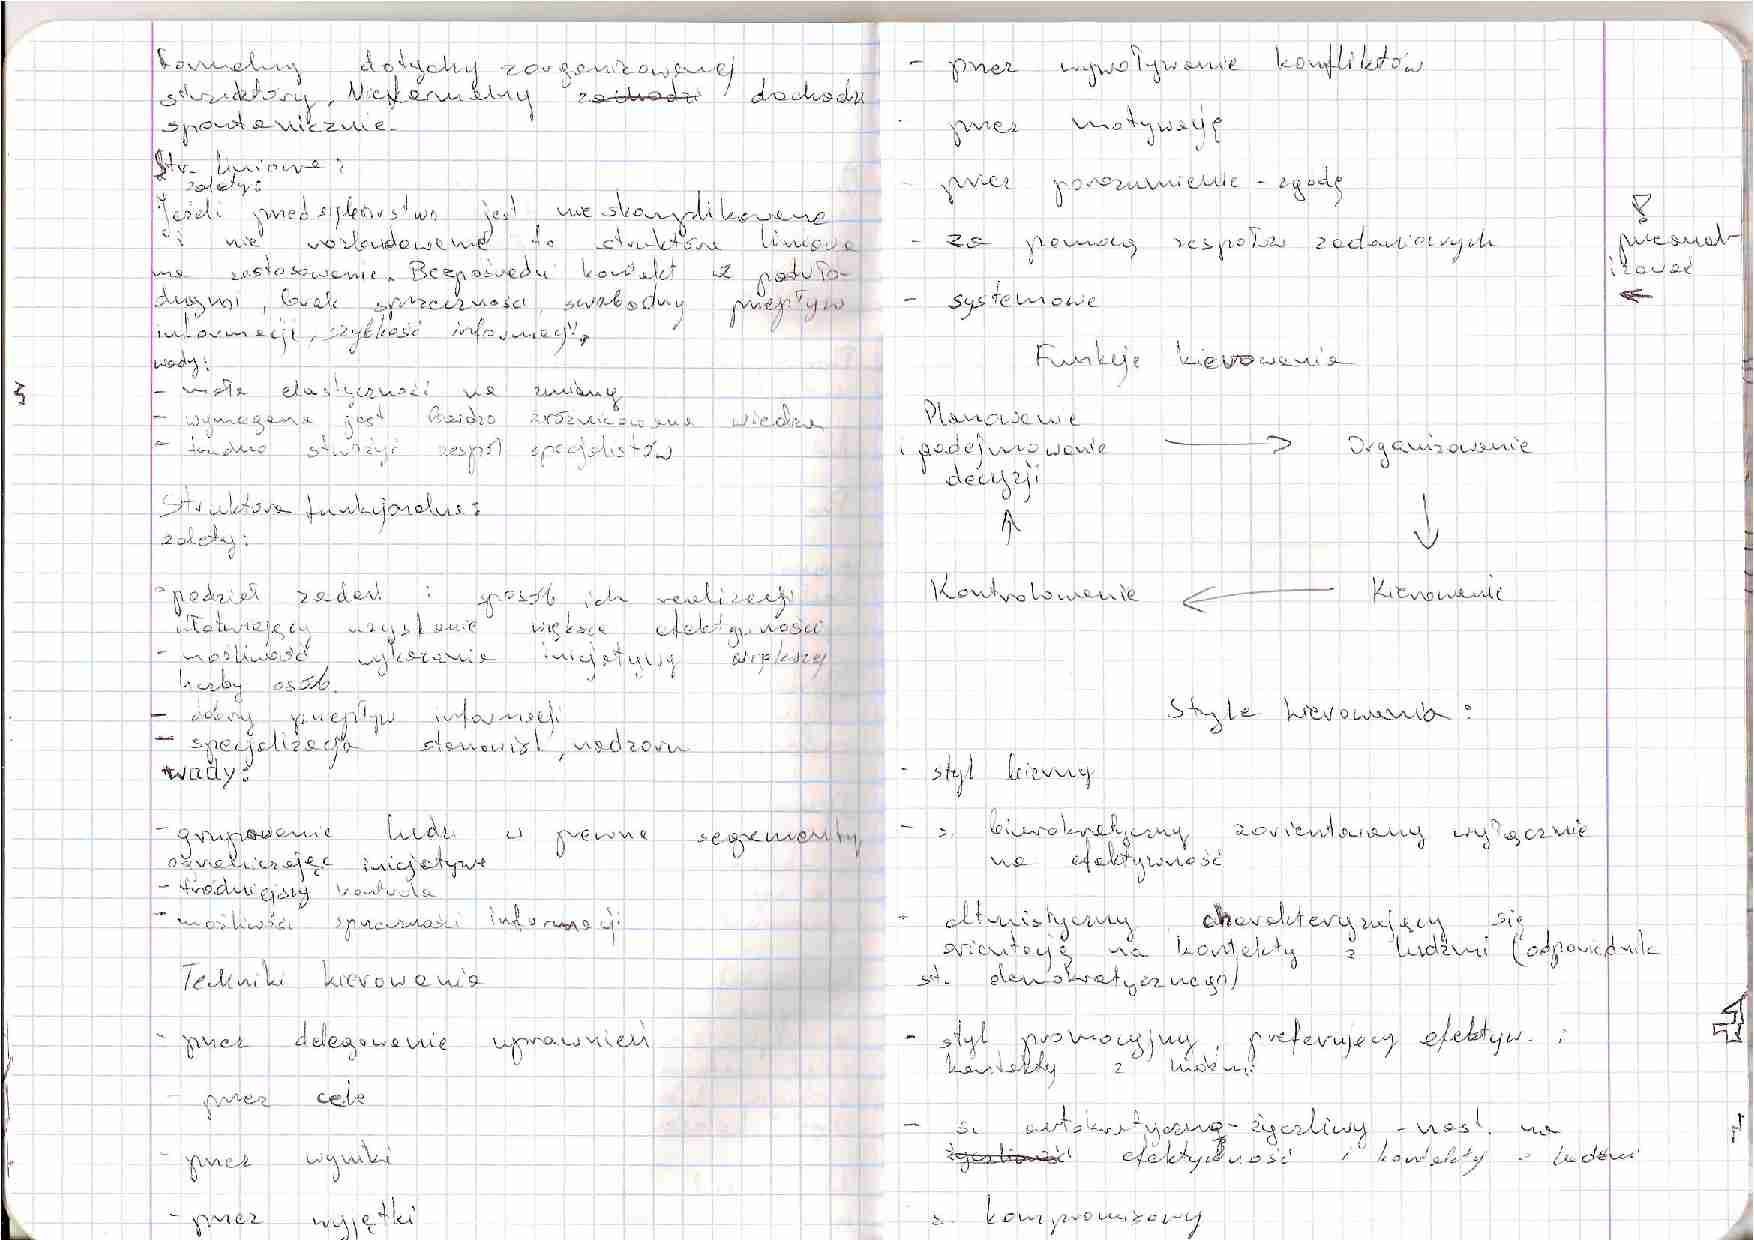 Formalny dotyczy zorganizowanej
struktury, Nieformalny zachodzi dochodzi
spontanicznie.
Str. liniowa:
zalety:
Jeżeli przedsiębiorstwo jest nie skomplikowane
i nie rozbudowane to struktura liniowa
ma zastosowanie. Bezpośredni kontakt z podwła-
dnymi, brak sprzeczności, swobodny przepływ
informacji, szybkość informacji.
wady:
- mała elastyczność na zmiany
- wymagana jest bardzo zróżnicowana wiedza
- trudno stworzyć zespół specjalistów
Struktura funkcjonalna:
zalety:
- podział zadań i sposób ich realizacji
ułatwiający uzyskanie większej efektywności
- możliwość wykazania inicjatywy większej
liczby osób.
- dobry przepływ informacji
- specjalizacja stanowisk, nadzoru
wady:
- grupowanie ludzi w pewne segmenty,
ograniczając inicjatywę
- trudniejszy kontrola
- możliwość sprzeczności informacji
Techniki kierowania
- przez delegowanie uprawnień
- przez cele
- przez wyniki
- przez wyjątki
- przez wywoływanie konfliktów
- przez motywację
- przez porozumienie - zgodę
- za pomocą zespołów zadaniowych
- systemowe
Funkcje kierowania
Planowanie
i podejmowanie
decyzji
Organizowanie
Kontrolowanie
Kierowanie
Style kierowania:
- styl bierny
- s. biurokratyczny zorientowany wyłącznie
na efektywność
- altruistyczny charakteryzujący się
orientacją na kontakty z ludźmi (odpowiednik
st. demokratycznego)
- styl promocyjny, preferujący efektyw. i
kontakty z ludźmi
- s. autokratyczno-życzliwy - nast. na
życzliwość efektywność i kontakty z ludźmi
s. kompromisowy